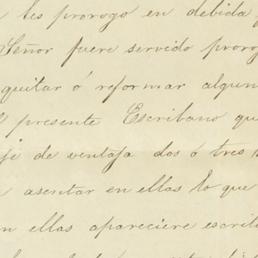 tes prorogo en debida
Señor fuere servido prorog
quitar ó reformar algun
presente Escribano qu
je de ventaja dos ó tres
asentar en ellas lo que
n ellas apareciere escrit